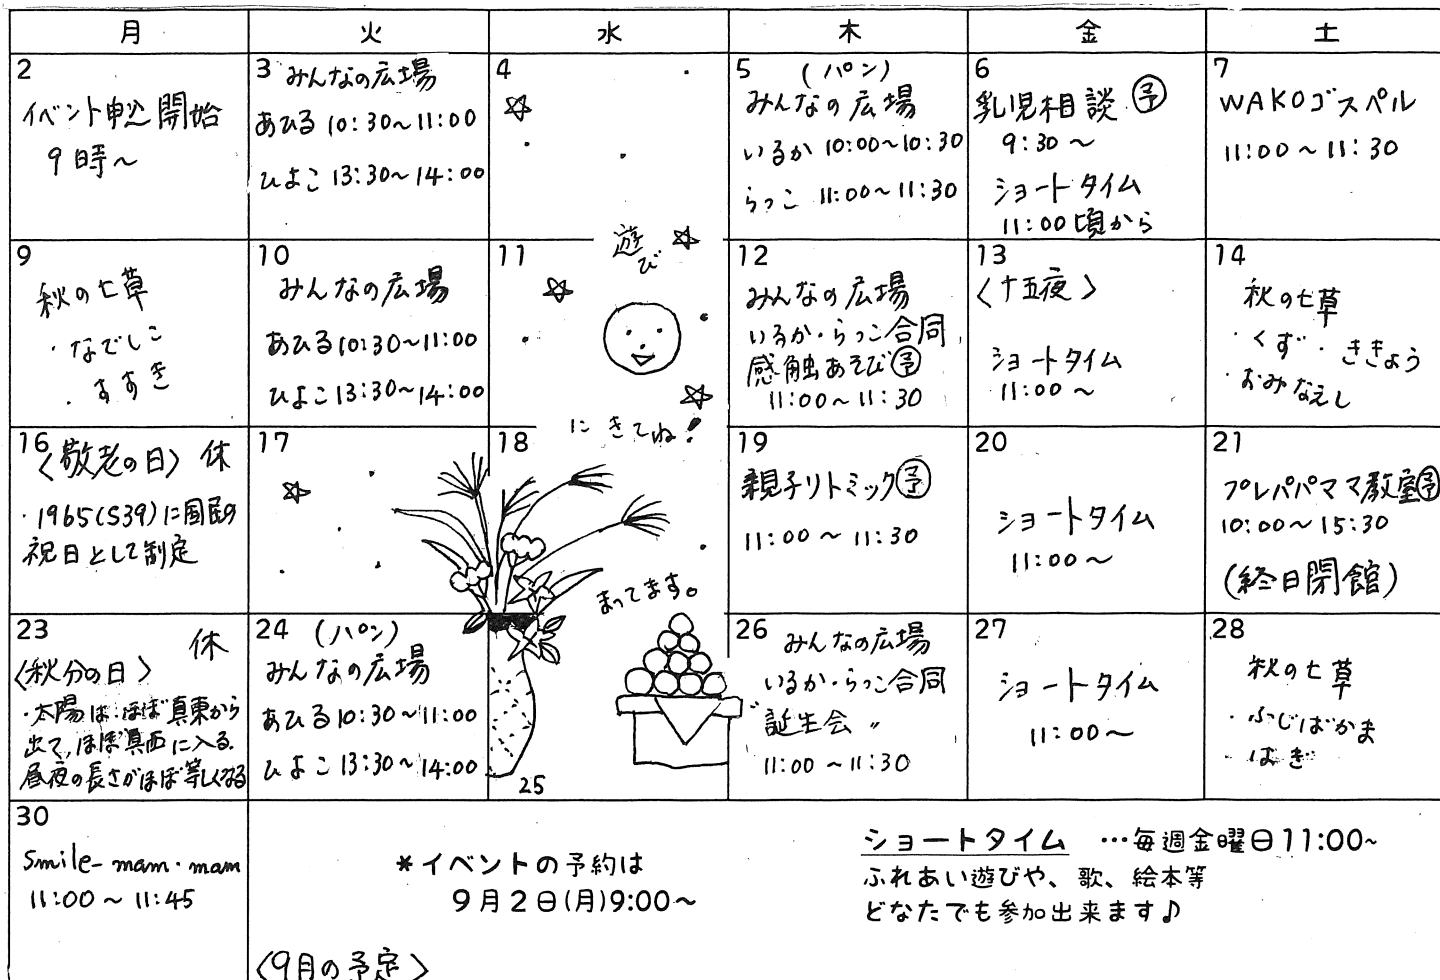 月 火 水 木 金 土
2
イベント申込開始
9時～
3 みんなの広場
あひる 10:30～11:00
ひよこ 13:30～14:00
4
5 (パン)
みんなの広場
いるか 10:00～10:30
らっこ 11:00～11:30
6
乳児相談 予
9:30～
ショートタイム
11:00頃から
7
WAKOゴスペル
11:00～11:30
9
秋の七草
・なでしこ
・すすき
10
みんなの広場
あひる10:30～11:00
ひよこ13:30～14:00
11
遊び
にきてね!
12
みんなの広場
いるか・らっこ合同
感触あそび予
11:00～11:30
13
〈十五夜〉
ショートタイム
11:00～
14
秋の七草
・くず・ききょう
・おみなえし
16
〈敬老の日〉 休
・1965(S39)に国民の
祝日として制定
17
18
まってます。
19
親子リトミック予
11:00～11:30
20
ショートタイム
11:00～
21
プレパパママ教室予
10:00～15:30
(終日閉館)
23
休
〈秋分の日〉
・太陽は ほぼ真東から
出て、ほぼ真西に入る.
昼夜の長さがほぼ等しくなる
24 (パン)
みんなの広場
あひる10:30～11:00
ひよこ13:30～14:00
25
26
みんなの広場
いるか・らっこ合同
“誕生会〃
11:00～11:30
27
ショートタイム
11:00～
28
秋の七草
・ふじばかま
・はぎ
30
Smile-mam・mam
11:00～11:45
*イベントの予約は
9月2日(月)9:00～
ショートタイム …毎週金曜日11:00～
ふれあい遊びや、歌、絵本等
どなたでも参加出来ます♪
〈9月の予定〉